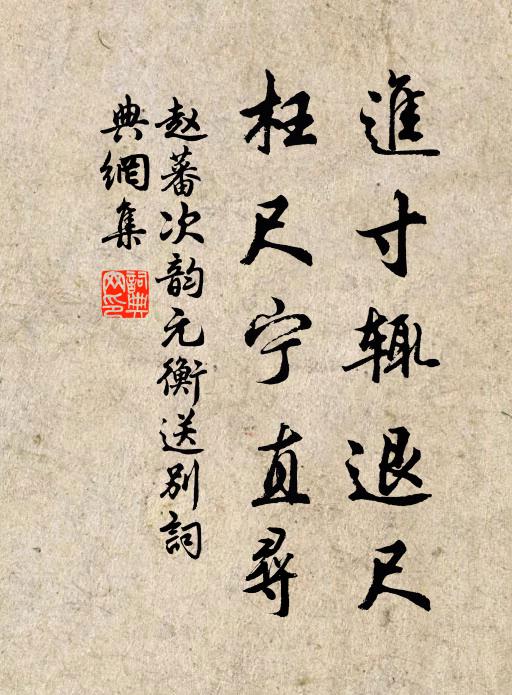 進寸輙退尺
枉尺宁直尋
赵蕃次韵元衡送别詞
典網集
詞典网印